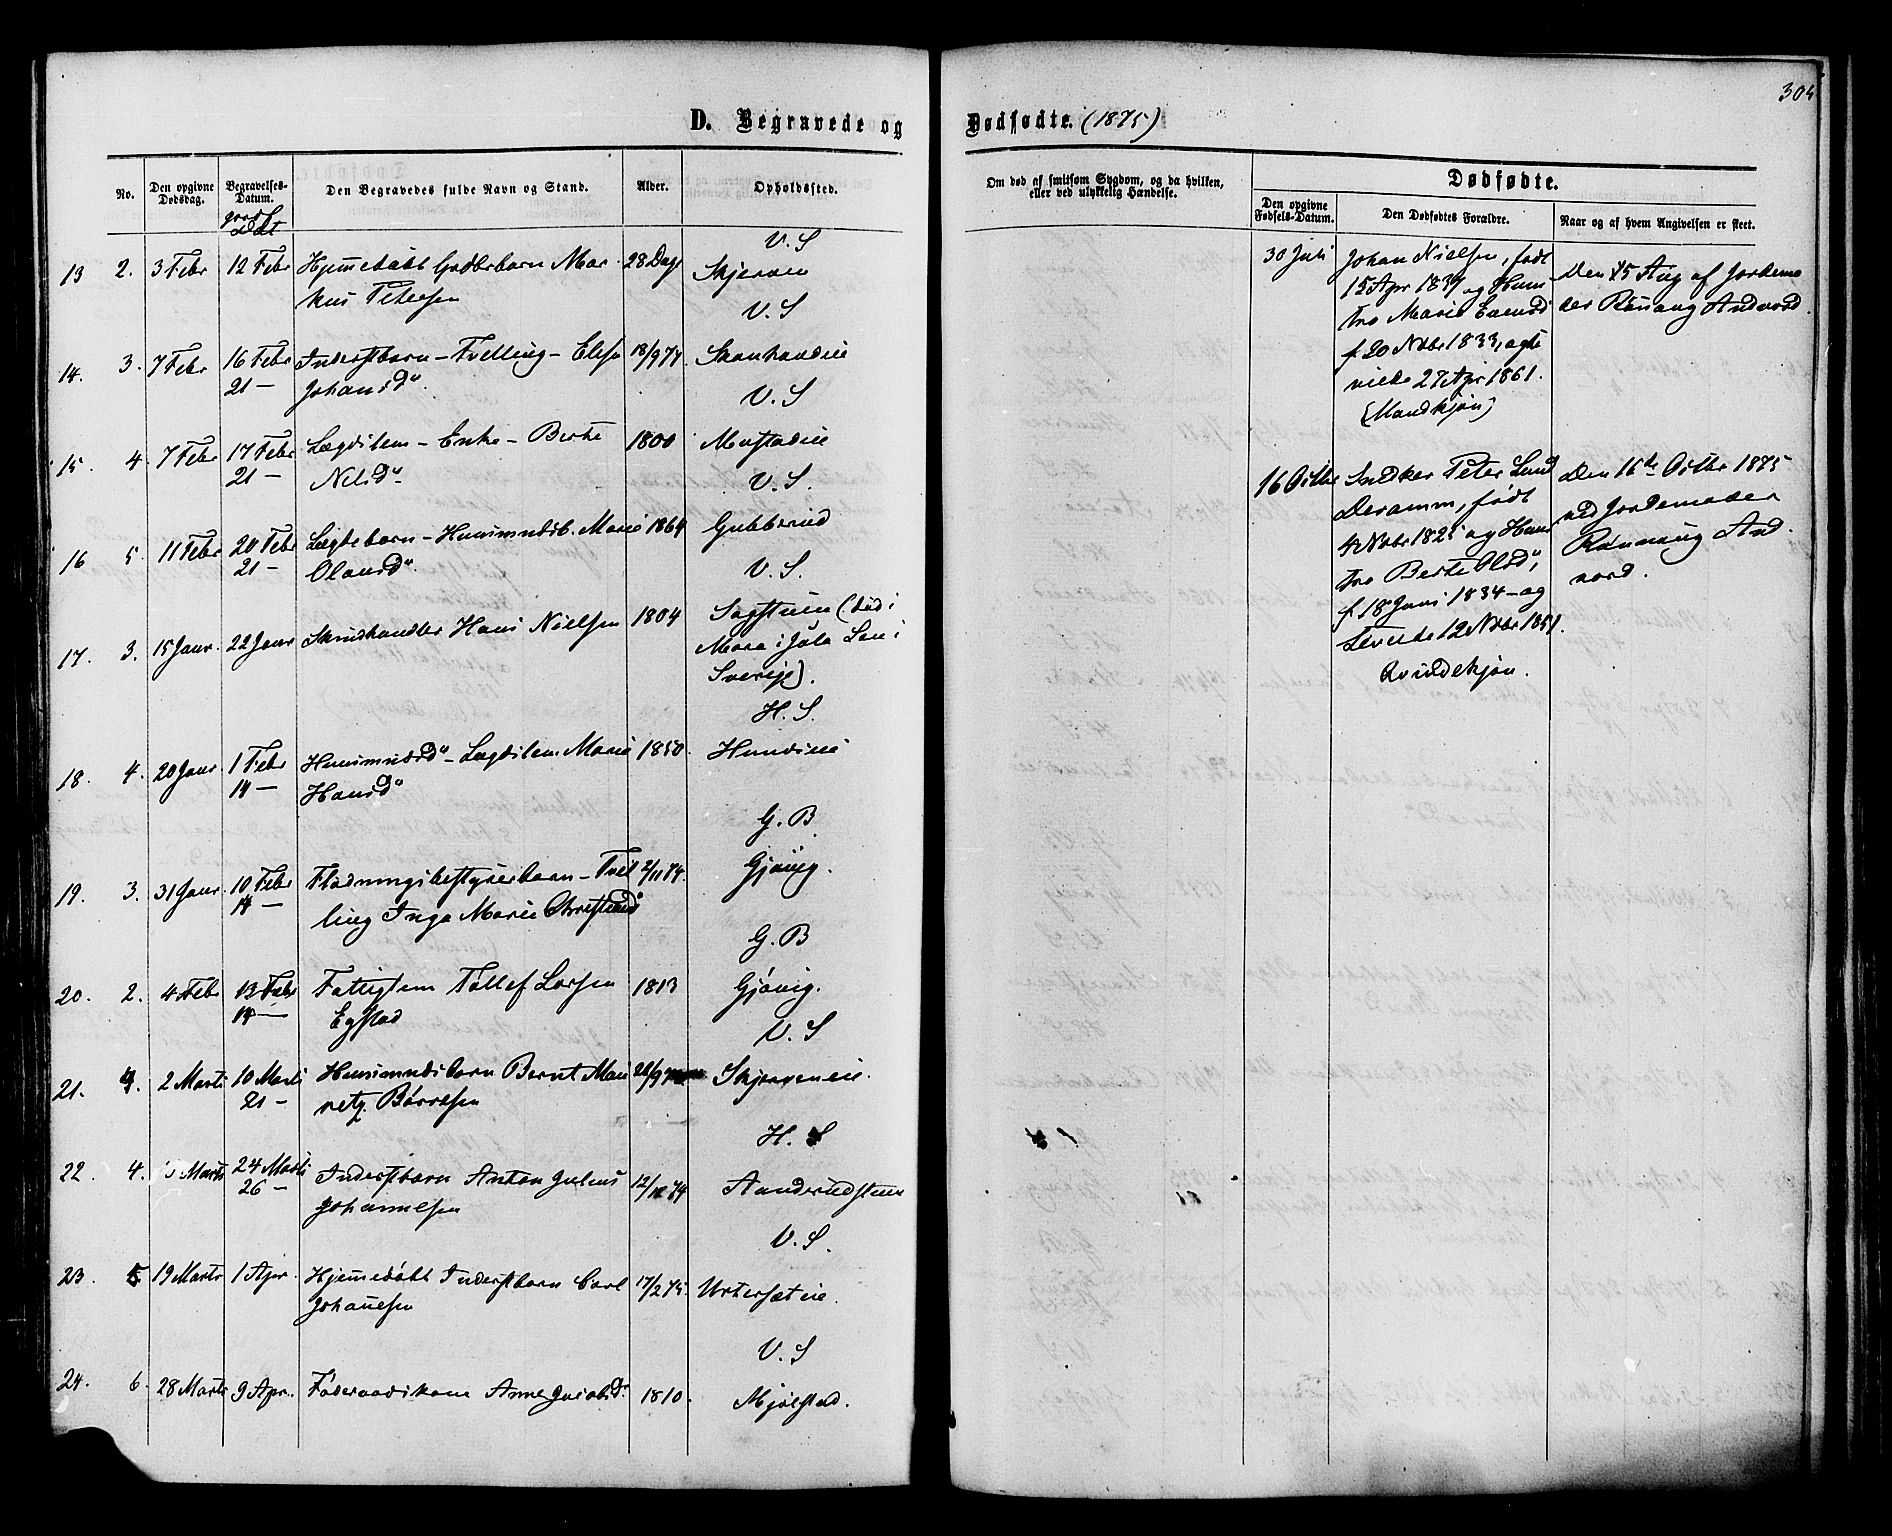 304
D. Begravede og
Dødfødte. (1875)
No.
Den opgivne Dødsdag.
Begravelses-Datum.
Den Begravedes fulde Navn og Stand.
Alder.
Opholdssted.
13 2. 3 Febr 12 Febr Hjemmedøbt Gaardbrbarn Mar- 28 Dage V. S
kus Petersen Skjerven
14. 3. 7 Febr 16 Febr Inderstbarn – Tvilling – Elise 18/9 74 V. S
21 – Johansd"
15 4. 7 Febr 17 Febr Lægdslem – Enke – Berthe 1800 Mustadeie V. S
21 – Nilsd"
16 5. 11 Febr 20 Febr Lægdebarn – Huusmndsb. Marie 1864 Gubberud V. S.
21 – Olausd"
17. 3. 15 Janr 22 Janr Skindhandler Hans Nielsen 1804 Sagstuen (død i V. S.
Mora i Sverige).
18. 4. 20 Janr 1 Febr Huusmndsd" – Lægdslem Marie 1850. Hundseie H. S.
14 – Hansd"
19. 3. 31 Janr. 10 Febr Flødningsbestyrerbarn – Tvil 2/11 74. Gjøvig. G. B
14 – ling Inga Marie Christiansd
20. 2. 4 Febr 13 Febr Fattiglem Tollef Larsen 1813 Gjøvig. G. B
14 – Egstad
21. 4. 2 Marts 10 Marts Huusmndsbarn Bernt Mau Skjerveneie. V. S
21 – ritz Børresen
22. 4. Marts 24 Marts Inderstbarn Anton Julius 12/12 74 Aanderudstuen H. S
26 – Johannesen
23. 5 19 Marts 1 Apr. Hjemmedøbt Inderstbarn Carl 17/2 75. Urtersæteie. V. S.
Johannesen
24. 6. 28 Marts 9 Apr. Føderaadskone Anne Jacobsd" 1810. Mjølstad. V. S
Om død af smitsom Sygdom, og da hvilken,
eller ved ulykkelig Hændelse.
Dødfødte.
Den opgivne Fødsels-Datum.
Den Dødfødtes Forældre.
Naar og af hvem Angivelsen er skeet.
30 Juli Johan Nielsen, født Den 15 Aug af Jordemo
15 Apr 1837 og Hus- der Rønnaug Andvord.
tro Marie Evensd
f. 20 Novbr 1833, ægte
viede 27 Apr 1861.
(Mandkjøn)
16 Octbr Snedker Peter Lund Den 16de Octbr 1875
Deramm, født ved Jordemoder
4 Novbr 1825 og Hus Rønnaug And.
tro Berte Olsd", vord.
f. 18 Juni 1834 – og
12 Novbr 1851.
Qvindekjøn.